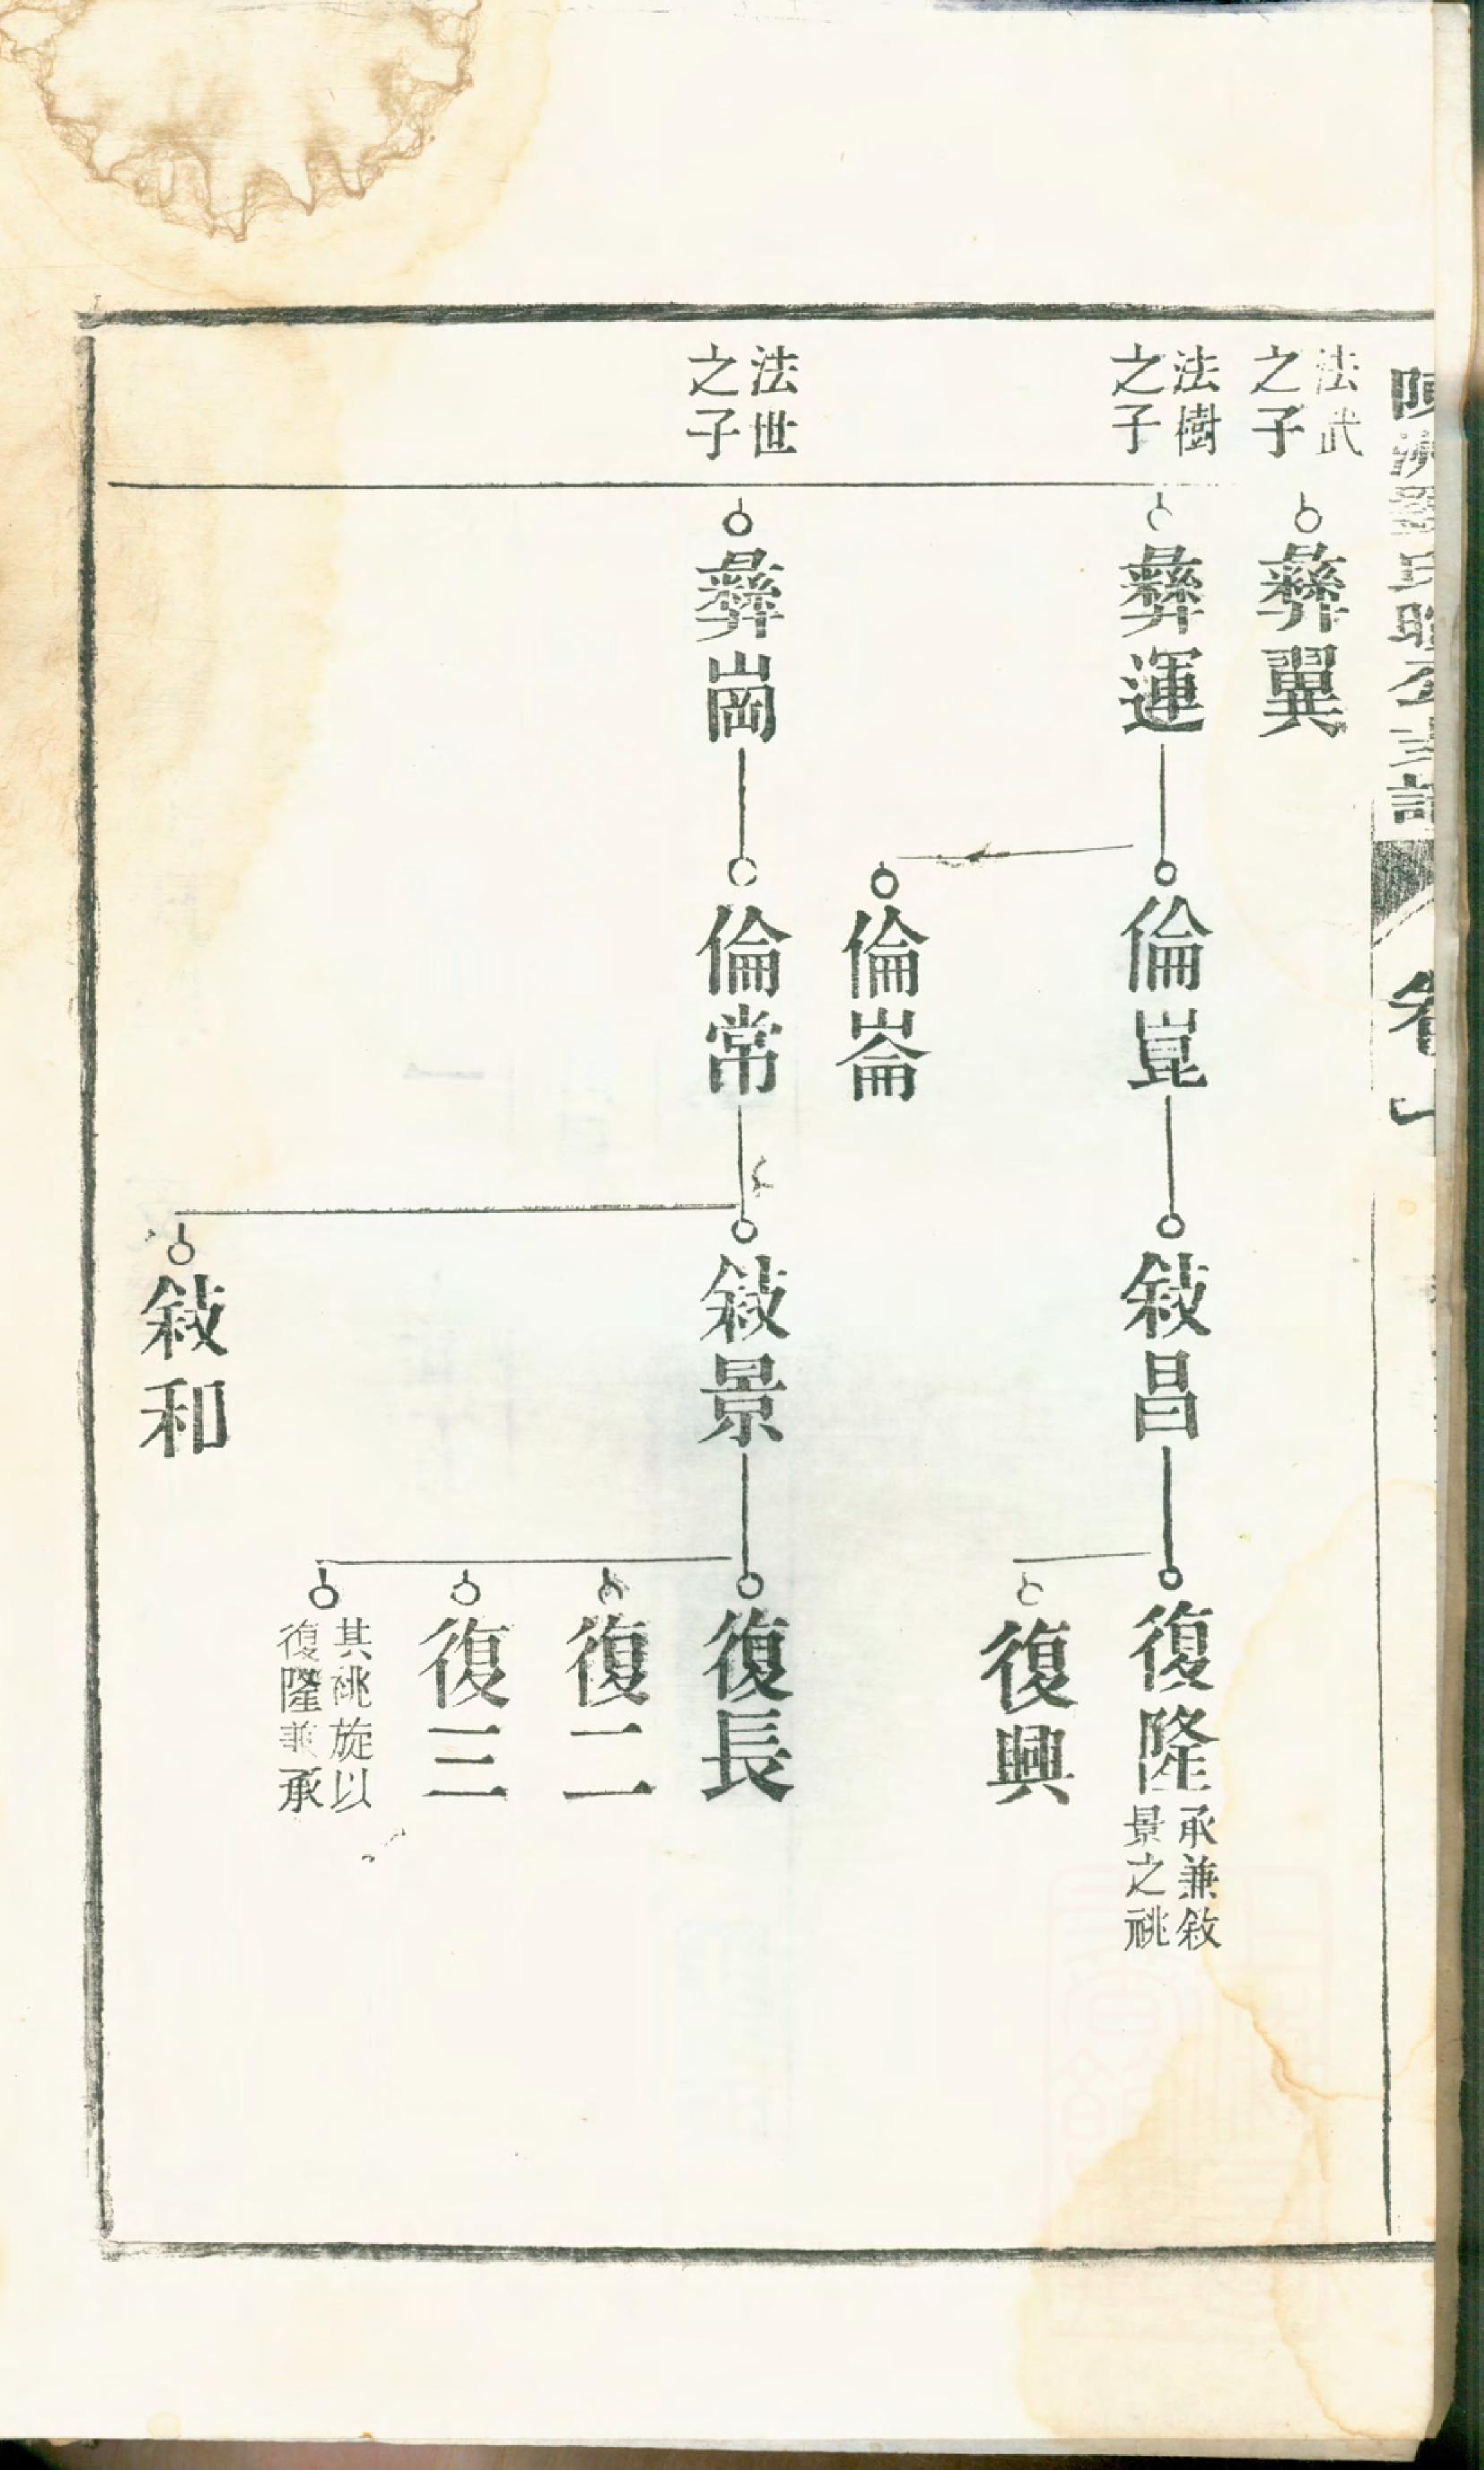 氏
卷一
法武
之子
彝翼
法樹
之子
彝運
倫崑
敍昌
復隆
承兼敘
景之祧
復興
倫崙
法世
之子
彝崗
倫常
敍景
復長
復二
復三
其祧旋以
復隆兼承
敍和